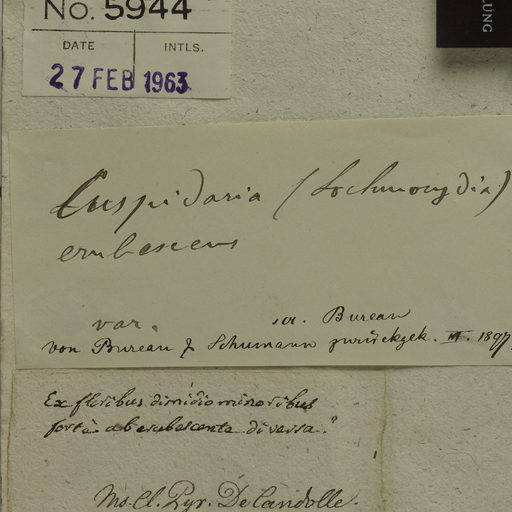 No. 5944
DATE INTLS.
27 FEB 1963
LUNG
Cuspidaria (Lochmocydia)
erubescens
var. scr. Bureau
von Bureau & Schumann zurückgek. III. 1897
Ex floribus dimidio minoribus
forte ab erubescente diversa?
Ms. Cl. Pyr. De Candolle.